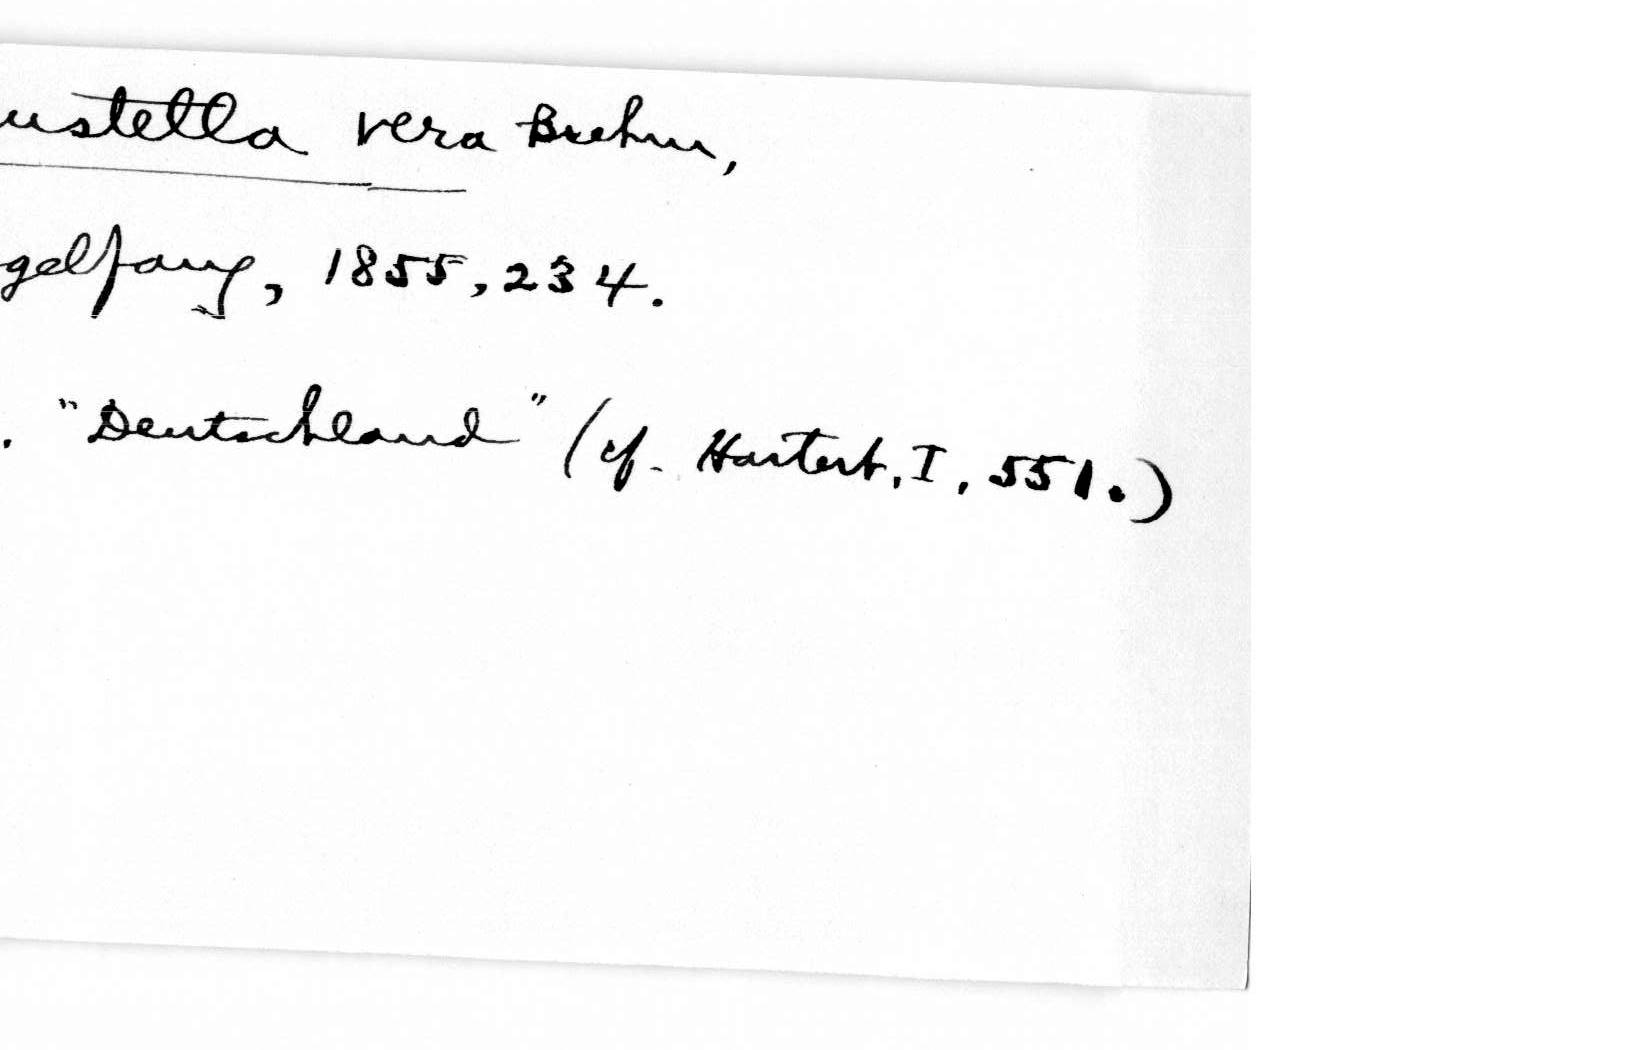 ustella vera Brehm,
gelfang, 1855, 234.
. "Deutschland" (cf. Hartert, I, 551.)